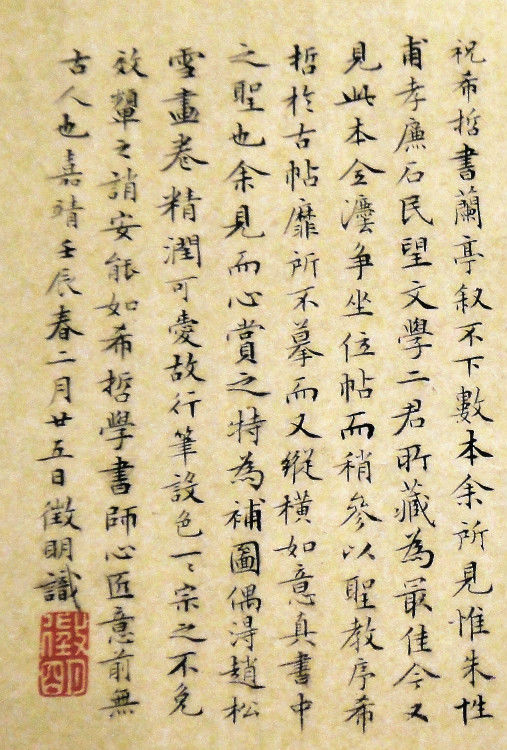 祝希哲書蘭亭叙不下數本余所見惟朱性
甫孝廉石民望文學二君所藏為最佳今又
見此本全灋爭坐位帖而稍參以聖教序希
哲於古帖靡所不摹而又縱橫如意真書中
之聖也余見而心賞之特為補圖偶淂趙松
雪畫卷精潤可愛故行筆設色一〻宗之不免
效顰之誚安能如希哲學書師心匠意前無
古人也嘉靖壬辰春二月廿五日徵明識
徵明